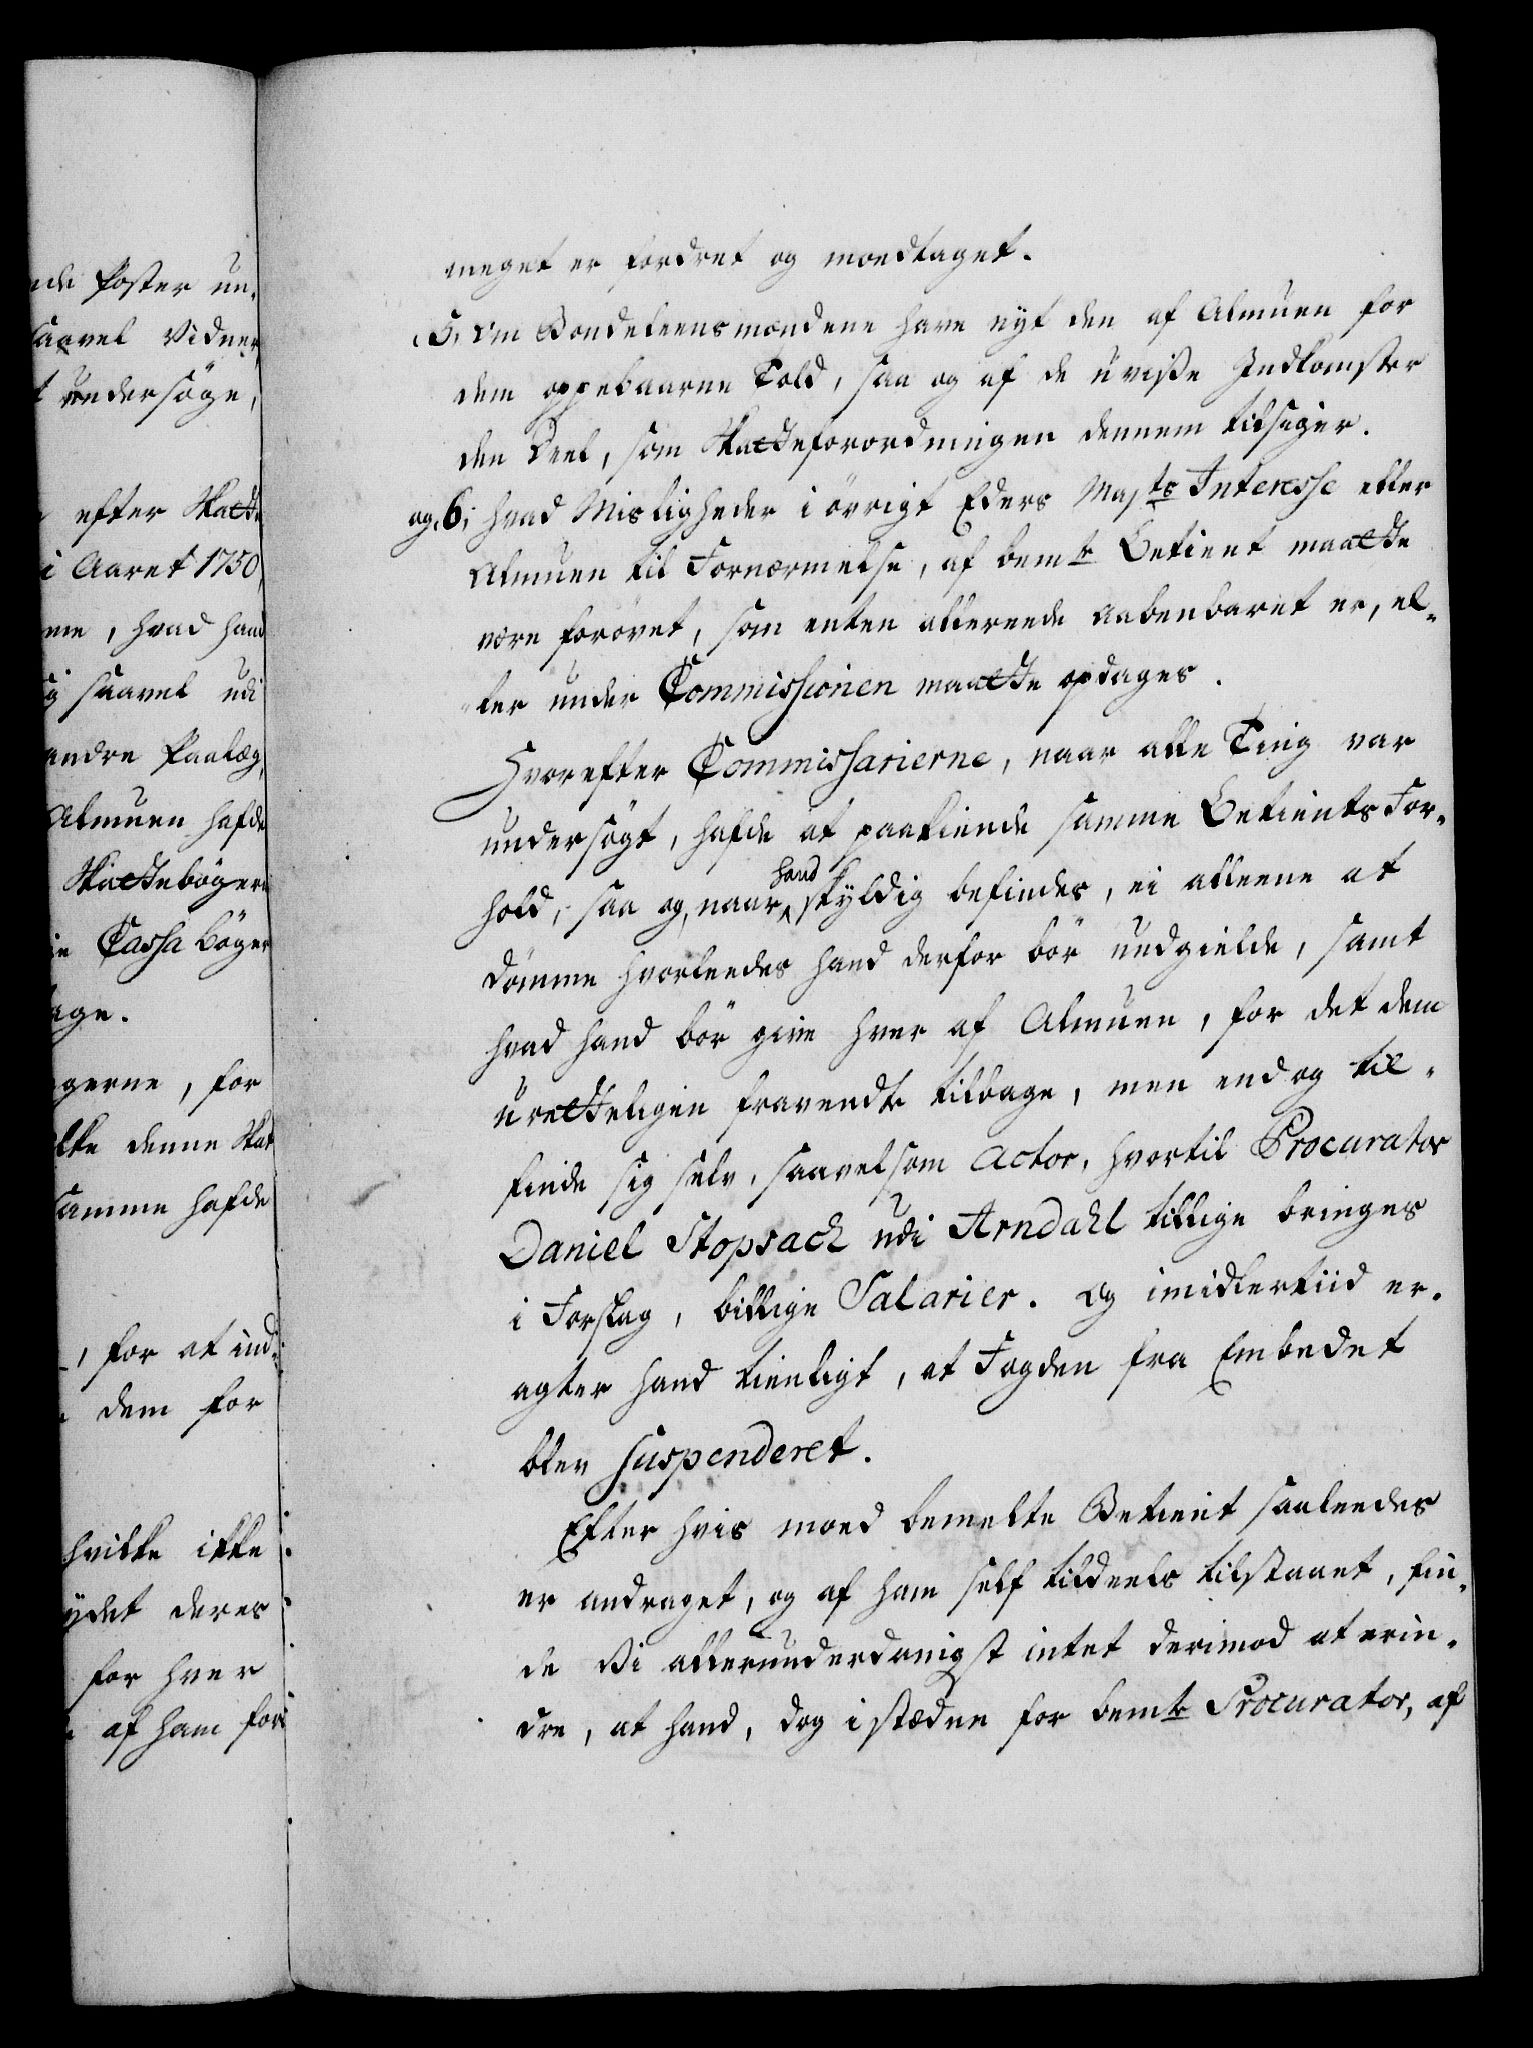 nde Poster un-
saavel Vidner
t undersöge,
efter Skatte
i Aaret 1750,
me, hvad hand
ig saavel udi
andre Paalæg,
Almuen hafde
Skattebögerne
Cassa böger
age.
gerne, for
ikke denne Skat
samme hafde
, for at ind-
dem for
hvilke ikke
ydet deres
for hver
af ham for
meget er fordret og moedtaget.
5, om Bondeleensmændene have nyt den af Almuen for
dem oppebaarne Told, saa og af de uvisse Indkomster
den Deel, som Skatteforordningen dennem tilsiger.
og, 6, hvad Misligheder i övrigt Eders Majts Interesse eller
Almuen til Fornærmelse, af bemte Betient maatte
være forövet, som enten allereede aabenbaret er, el-
ler under Commissionen maatte opdages.
Hvorefter Commissarierne, naar alle Ting var
undersögt, hafde at paakiende samme Betients For-
hold, saa og, naar hand skyldig befindes, ei alleene at
dömme hvorleedes hand derfor bör undgielde, samt
hvad hand bör give hver af Almuen, for det dem
uretteligen fravendte tilbage, men end og til-
finde sig selv, saavelsom Actor, hvortil Procurator
Daniel Stopsack udi Arndahl tillige bringes
i Forslag, billige Salarier. Og imidlertiid er-
agter hand tienligt, at Fogden fra Embedet
blev suspenderet.
Efter hvis moed bemelte Betient saaleedes
er andraget, og af ham self tildeels tilstaaet, fin-
de Vi allerunderdanigst intet derimod at erin-
dre, at hand, dog i stæden for bemte Procurator, af